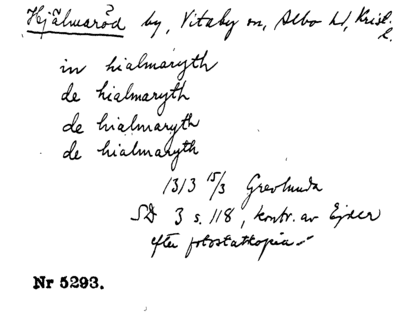 Hjälmaröd by, Vitaby sn, Albo hd, Krist. l.
in hialmaryth
de hialmaryth
de hialmaryth
de hialmaryth
1313 15/3 Grevlunda
SD 3 s. 118, kontr. av Ejder
efter fotostatkopia
Nr 5293.